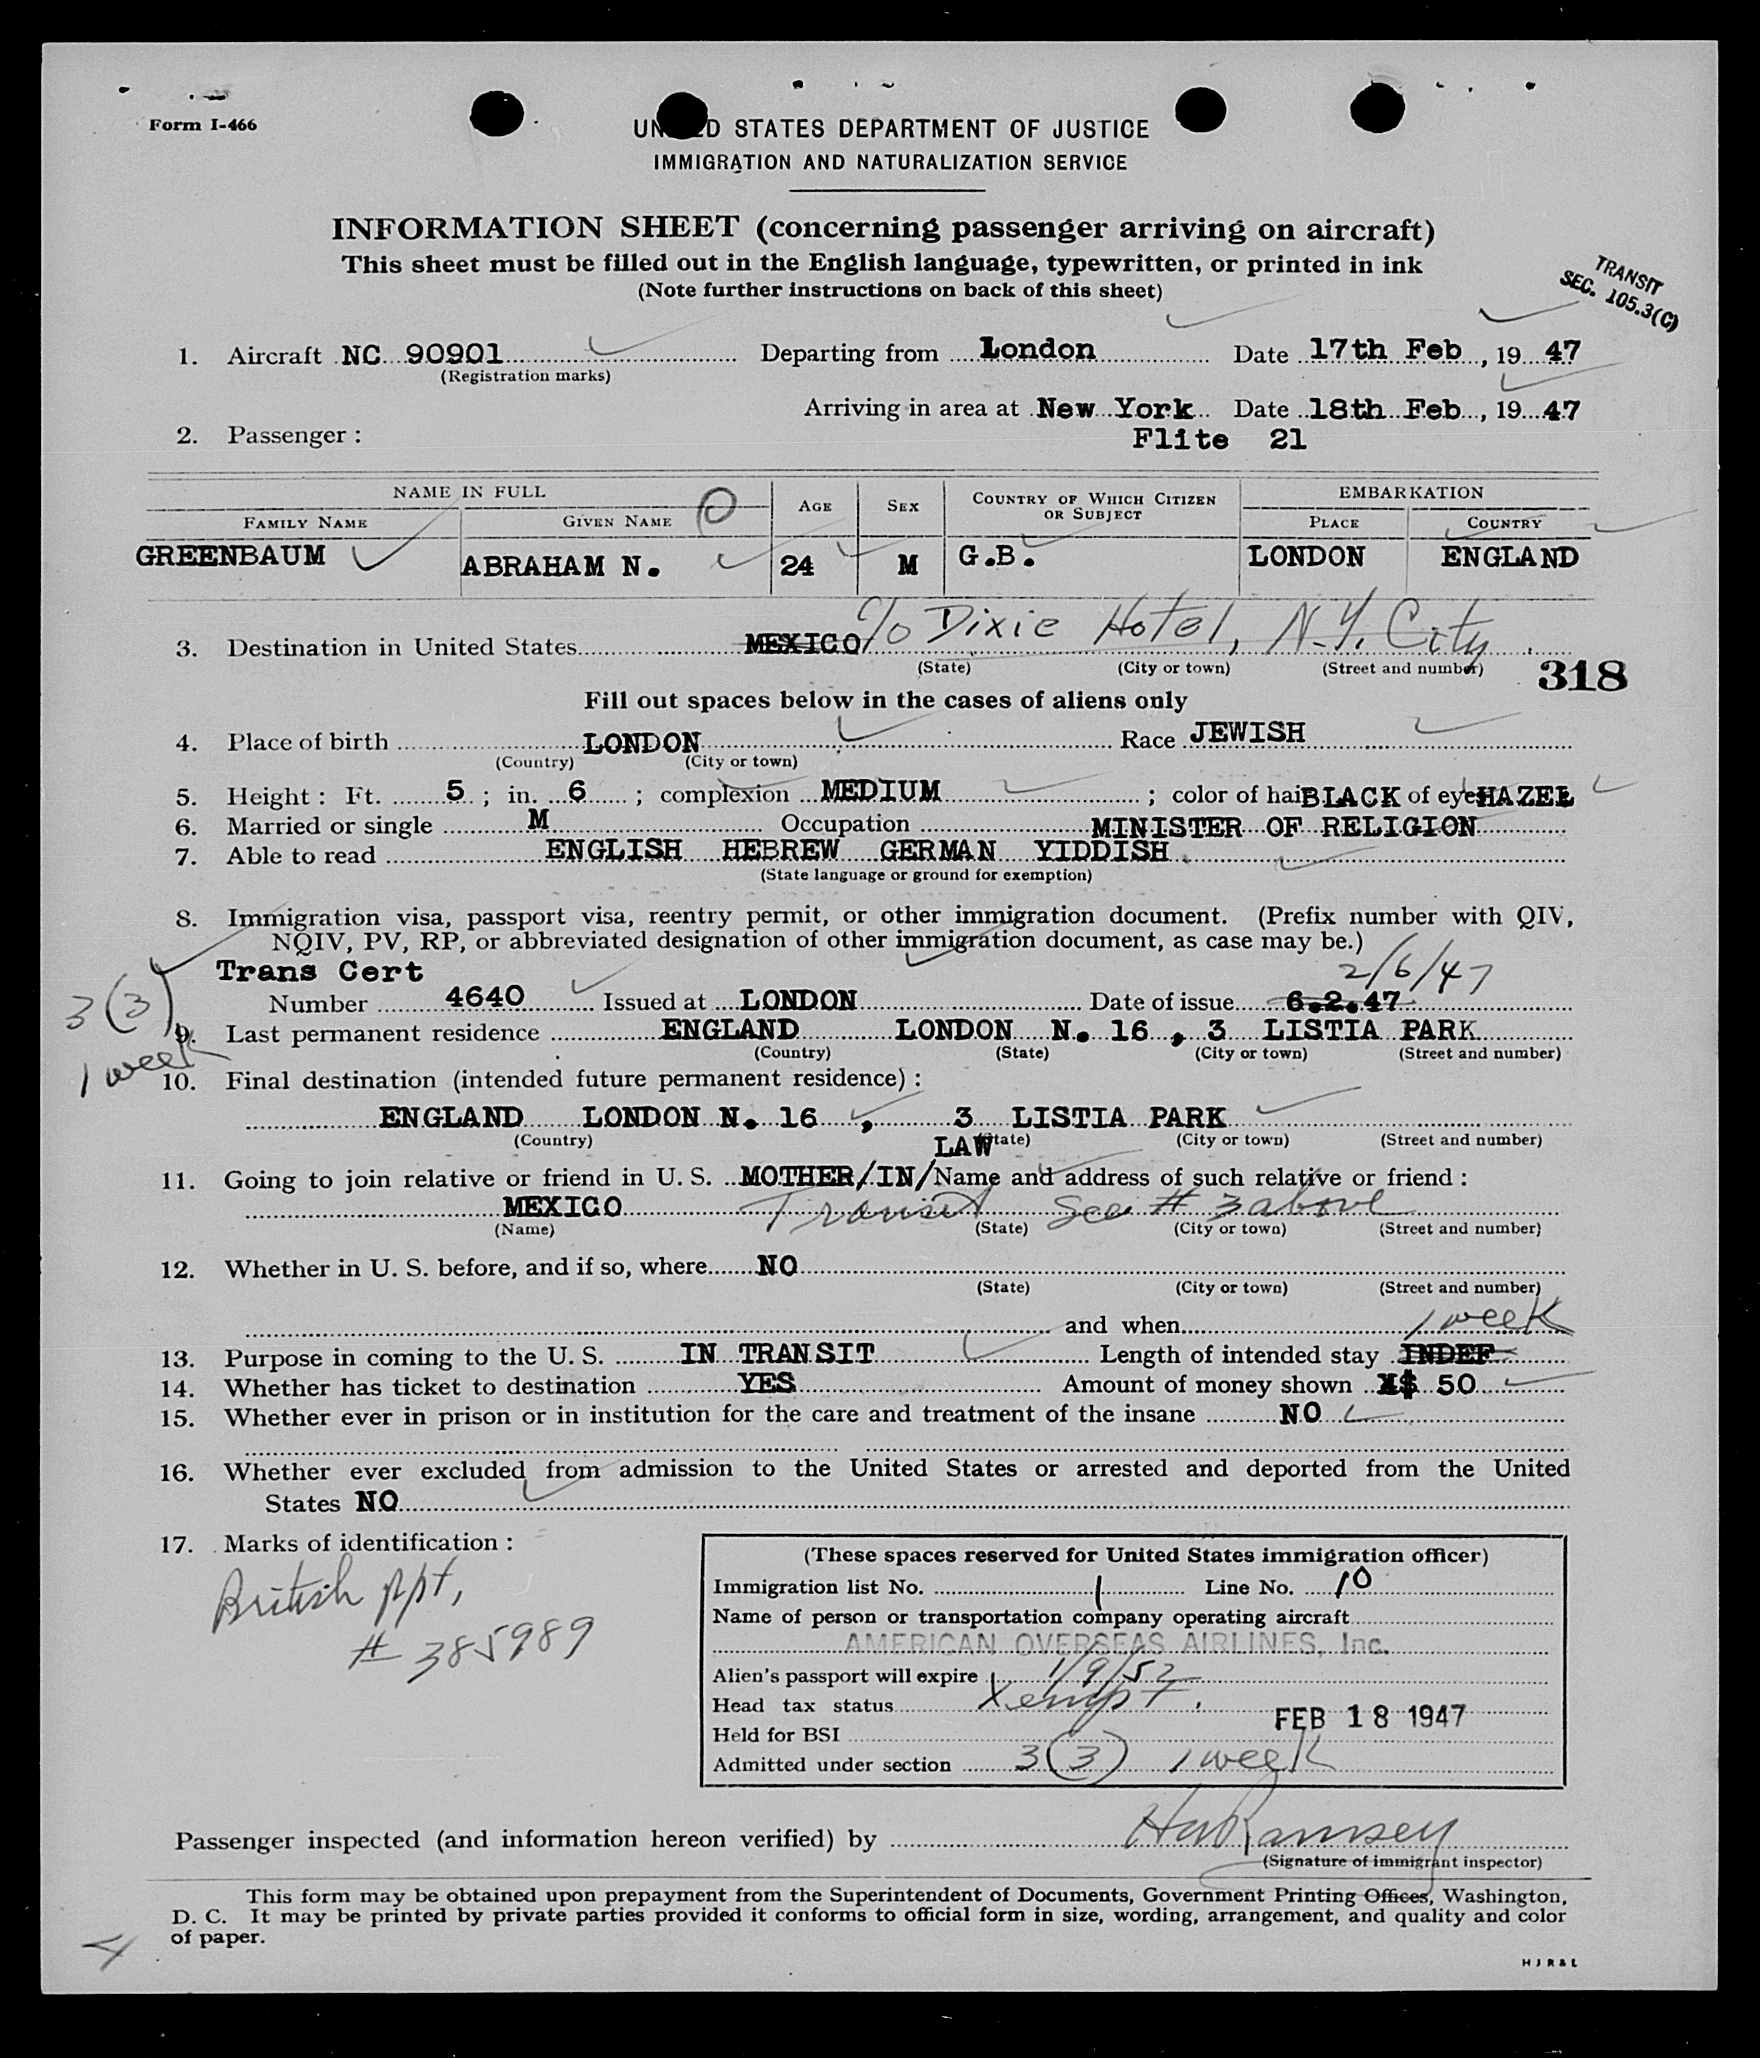 Form I-466
UNITED STATES DEPARTMENT OF JUSTICE
IMMIGRATION AND NATURALIZATION SERVICE
INFORMATION SHEET (concerning passenger arriving on aircraft)
This sheet must be filled out in the English language, typewritten, or printed in ink
(Note further instructions on back of this sheet)
TRANSIT
SEC. 105.3(C)
1. Aircraft NC 90901 Departing from London Date 17th Feb, 19 47
(Registration marks)
Arriving in area at New York Date 18th Feb, 19 47
2. Passenger : Flite 21
NAME IN FULL AGE SEX COUNTRY OF WHICH CITIZEN OR SUBJECT EMBARKATION
FAMILY NAME GIVEN NAME PLACE COUNTRY
GREENBAUM ABRAHAM N. 24 M G.B. LONDON ENGLAND
3. Destination in United States MEXICO c/o Dixie Hotel, N.Y. City
(State) (City or town) (Street and number)
318
Fill out spaces below in the cases of aliens only
4. Place of birth LONDON Race JEWISH
(Country) (City or town)
5. Height : Ft. 5 ; in. 6 ; complexion MEDIUM ; color of hair BLACK of eyes HAZEL
6. Married or single M Occupation MINISTER OF RELIGION
7. Able to read ENGLISH HEBREW GERMAN YIDDISH
(State language or ground for exemption)
8. Immigration visa, passport visa, reentry permit, or other immigration document. (Prefix number with QIV,
NQIV, PV, RP, or abbreviated designation of other immigration document, as case may be.)
Trans Cert 2/6/47
Number 4640 Issued at LONDON Date of issue 6.2.47
3(3)
1 week
9. Last permanent residence ENGLAND LONDON N. 16 , 3 LISTIA PARK
(Country) (State) (City or town) (Street and number)
10. Final destination (intended future permanent residence) :
ENGLAND LONDON N. 16 , 3 LISTIA PARK
(Country) (State) (City or town) (Street and number)
LAW
11. Going to join relative or friend in U. S. MOTHER/IN/ Name and address of such relative or friend :
MEXICO Transit See # 3 above
(Name) (State) (City or town) (Street and number)
12. Whether in U. S. before, and if so, where NO
(State) (City or town) (Street and number)
and when
1 week
13. Purpose in coming to the U. S. IN TRANSIT Length of intended stay INDEF
14. Whether has ticket to destination YES Amount of money shown $ 50
15. Whether ever in prison or in institution for the care and treatment of the insane NO
16. Whether ever excluded from admission to the United States or arrested and deported from the United
States NO
17. Marks of identification :
British ppt,
# 385989
(These spaces reserved for United States immigration officer)
Immigration list No. 1 Line No. 10
Name of person or transportation company operating aircraft
AMERICAN OVERSEAS AIRLINES, Inc.
Alien's passport will expire 1/9/52
Head tax status Xempt.
FEB 18 1947
Held for BSI
Admitted under section 3(3) 1 week
Passenger inspected (and information hereon verified) by Ramsey
(Signature of immigrant inspector)
This form may be obtained upon prepayment from the Superintendent of Documents, Government Printing Offices, Washington,
D. C. It may be printed by private parties provided it conforms to official form in size, wording, arrangement, and quality and color
of paper.
H J R & L